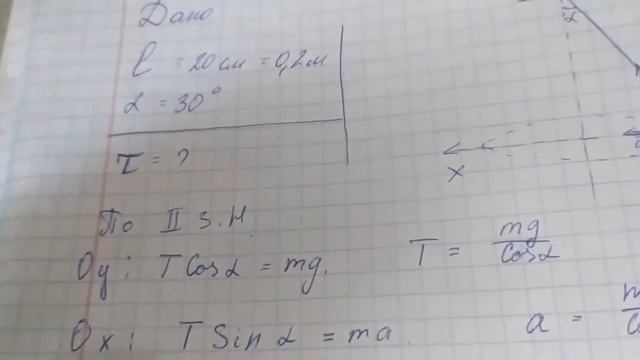 Дано
l = 20 см = 0,2 м
α = 30°
T = ?
α
x
По II З.Н.
Oy: T Cos α = mg.
T = mg / Cos α
Ox: T Sin α = ma.
a =